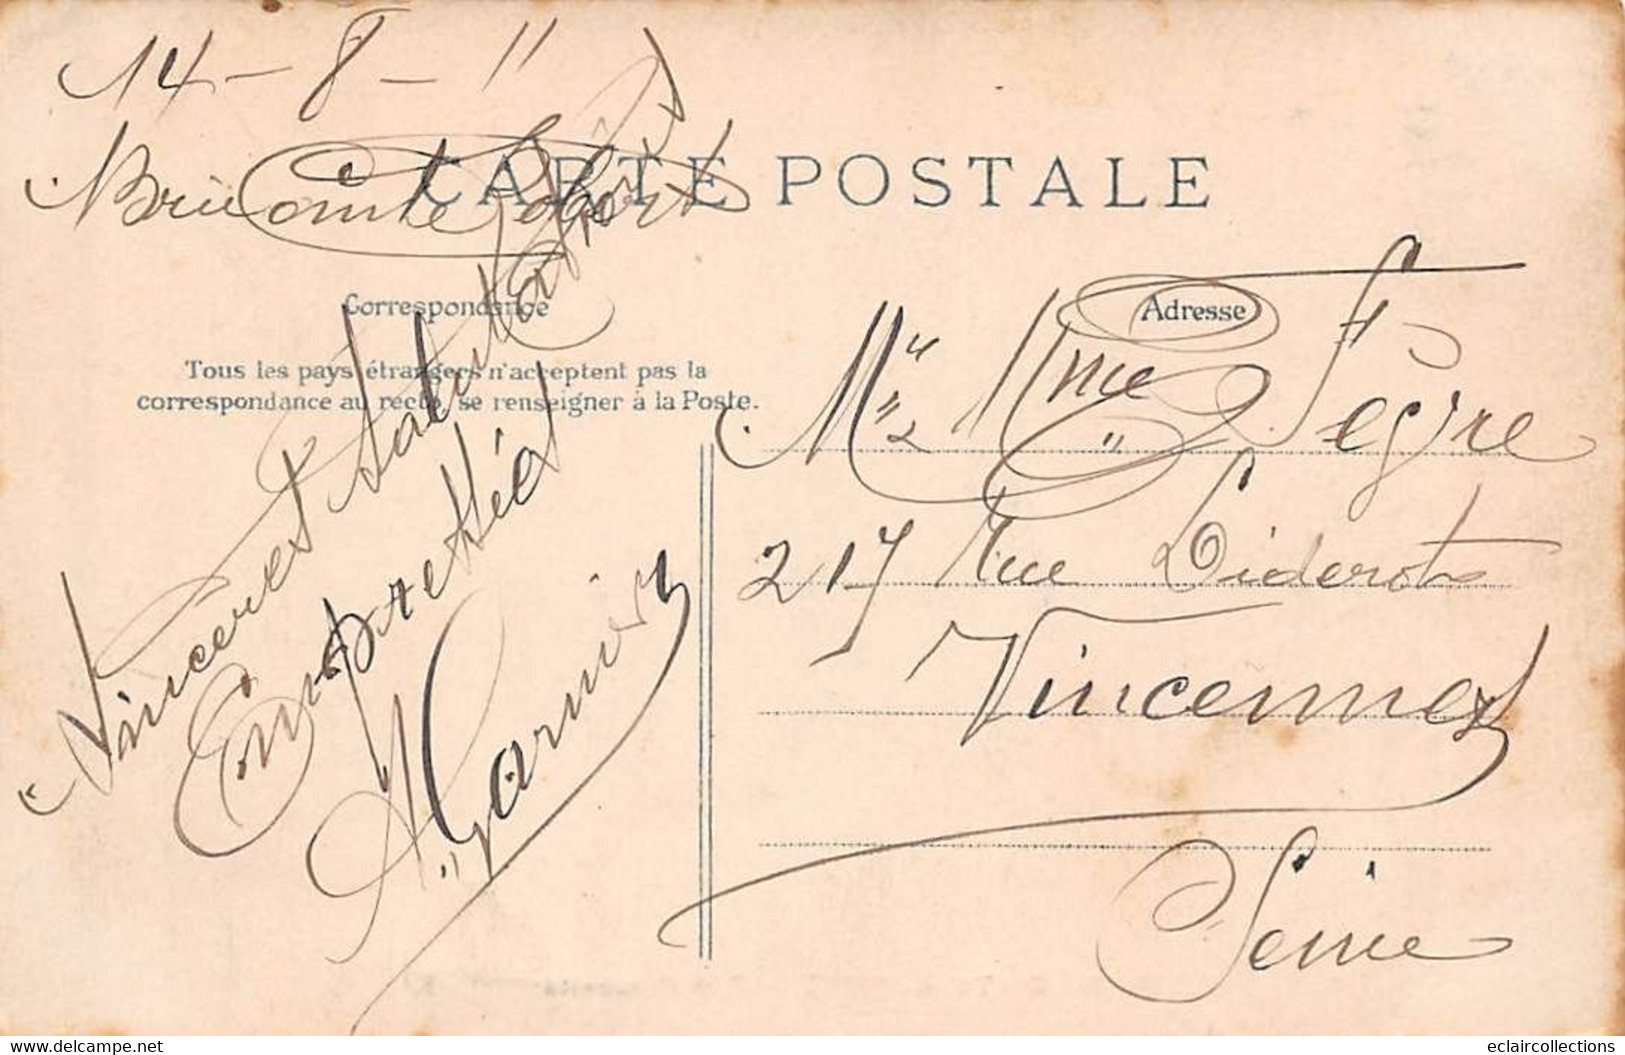 14-8-11
Brie Comte Robert
CARTE POSTALE
Correspondance
Adresse
Tous les pays étrangers n'acceptent pas la
correspondance au recto, se renseigner à la Poste.
Sincères Salut
Garnier
Mr & Mme Fegre
217 Rue Diderot
Vincennes
Seine
www.delcampe.net
eclaircollections